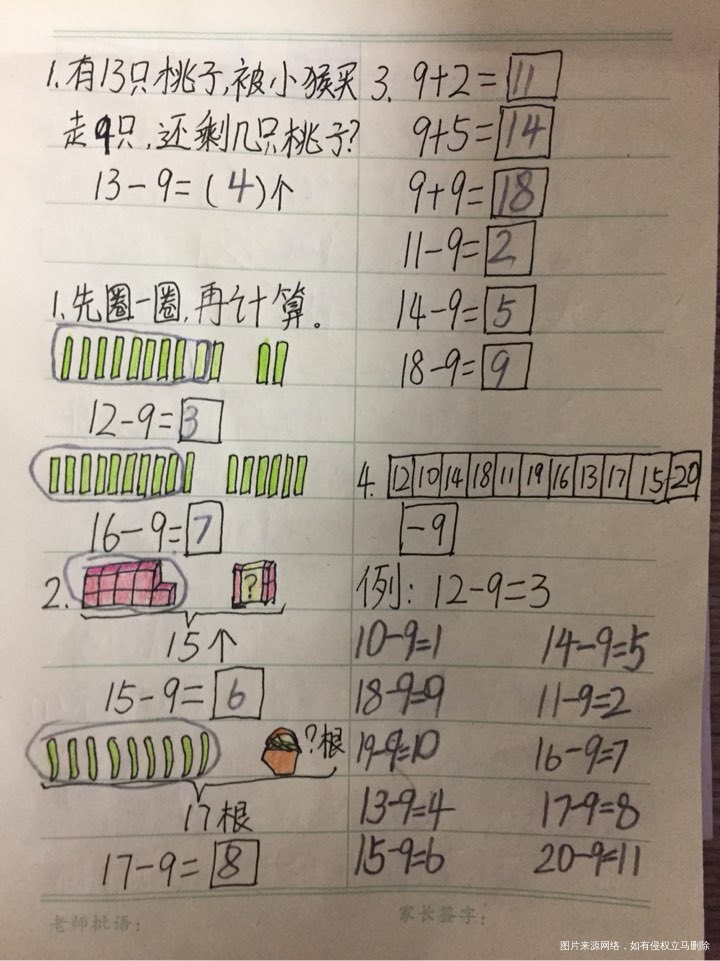 1.有13只桃子,被小猴买
走9只,还剩几只桃子?
13-9=(4)个
1.先圈一圈,再计算。
12-9=3
16-9=7
2.
?
15个
15-9=6
?根
17根
17-9=8
3. 9+2=11
9+5=14
9+9=18
11-9=2
14-9=5
18-9=9
4. 12 10 14 18 11 19 16 13 17 15 20
-9
例:12-9=3
10-9=1 14-9=5
18-9=9 11-9=2
19-9=10 16-9=7
13-9=4 17-9=8
15-9=6 20-9=11
老师批语: 家长签字:
图片来源网络，如有侵权立马删除